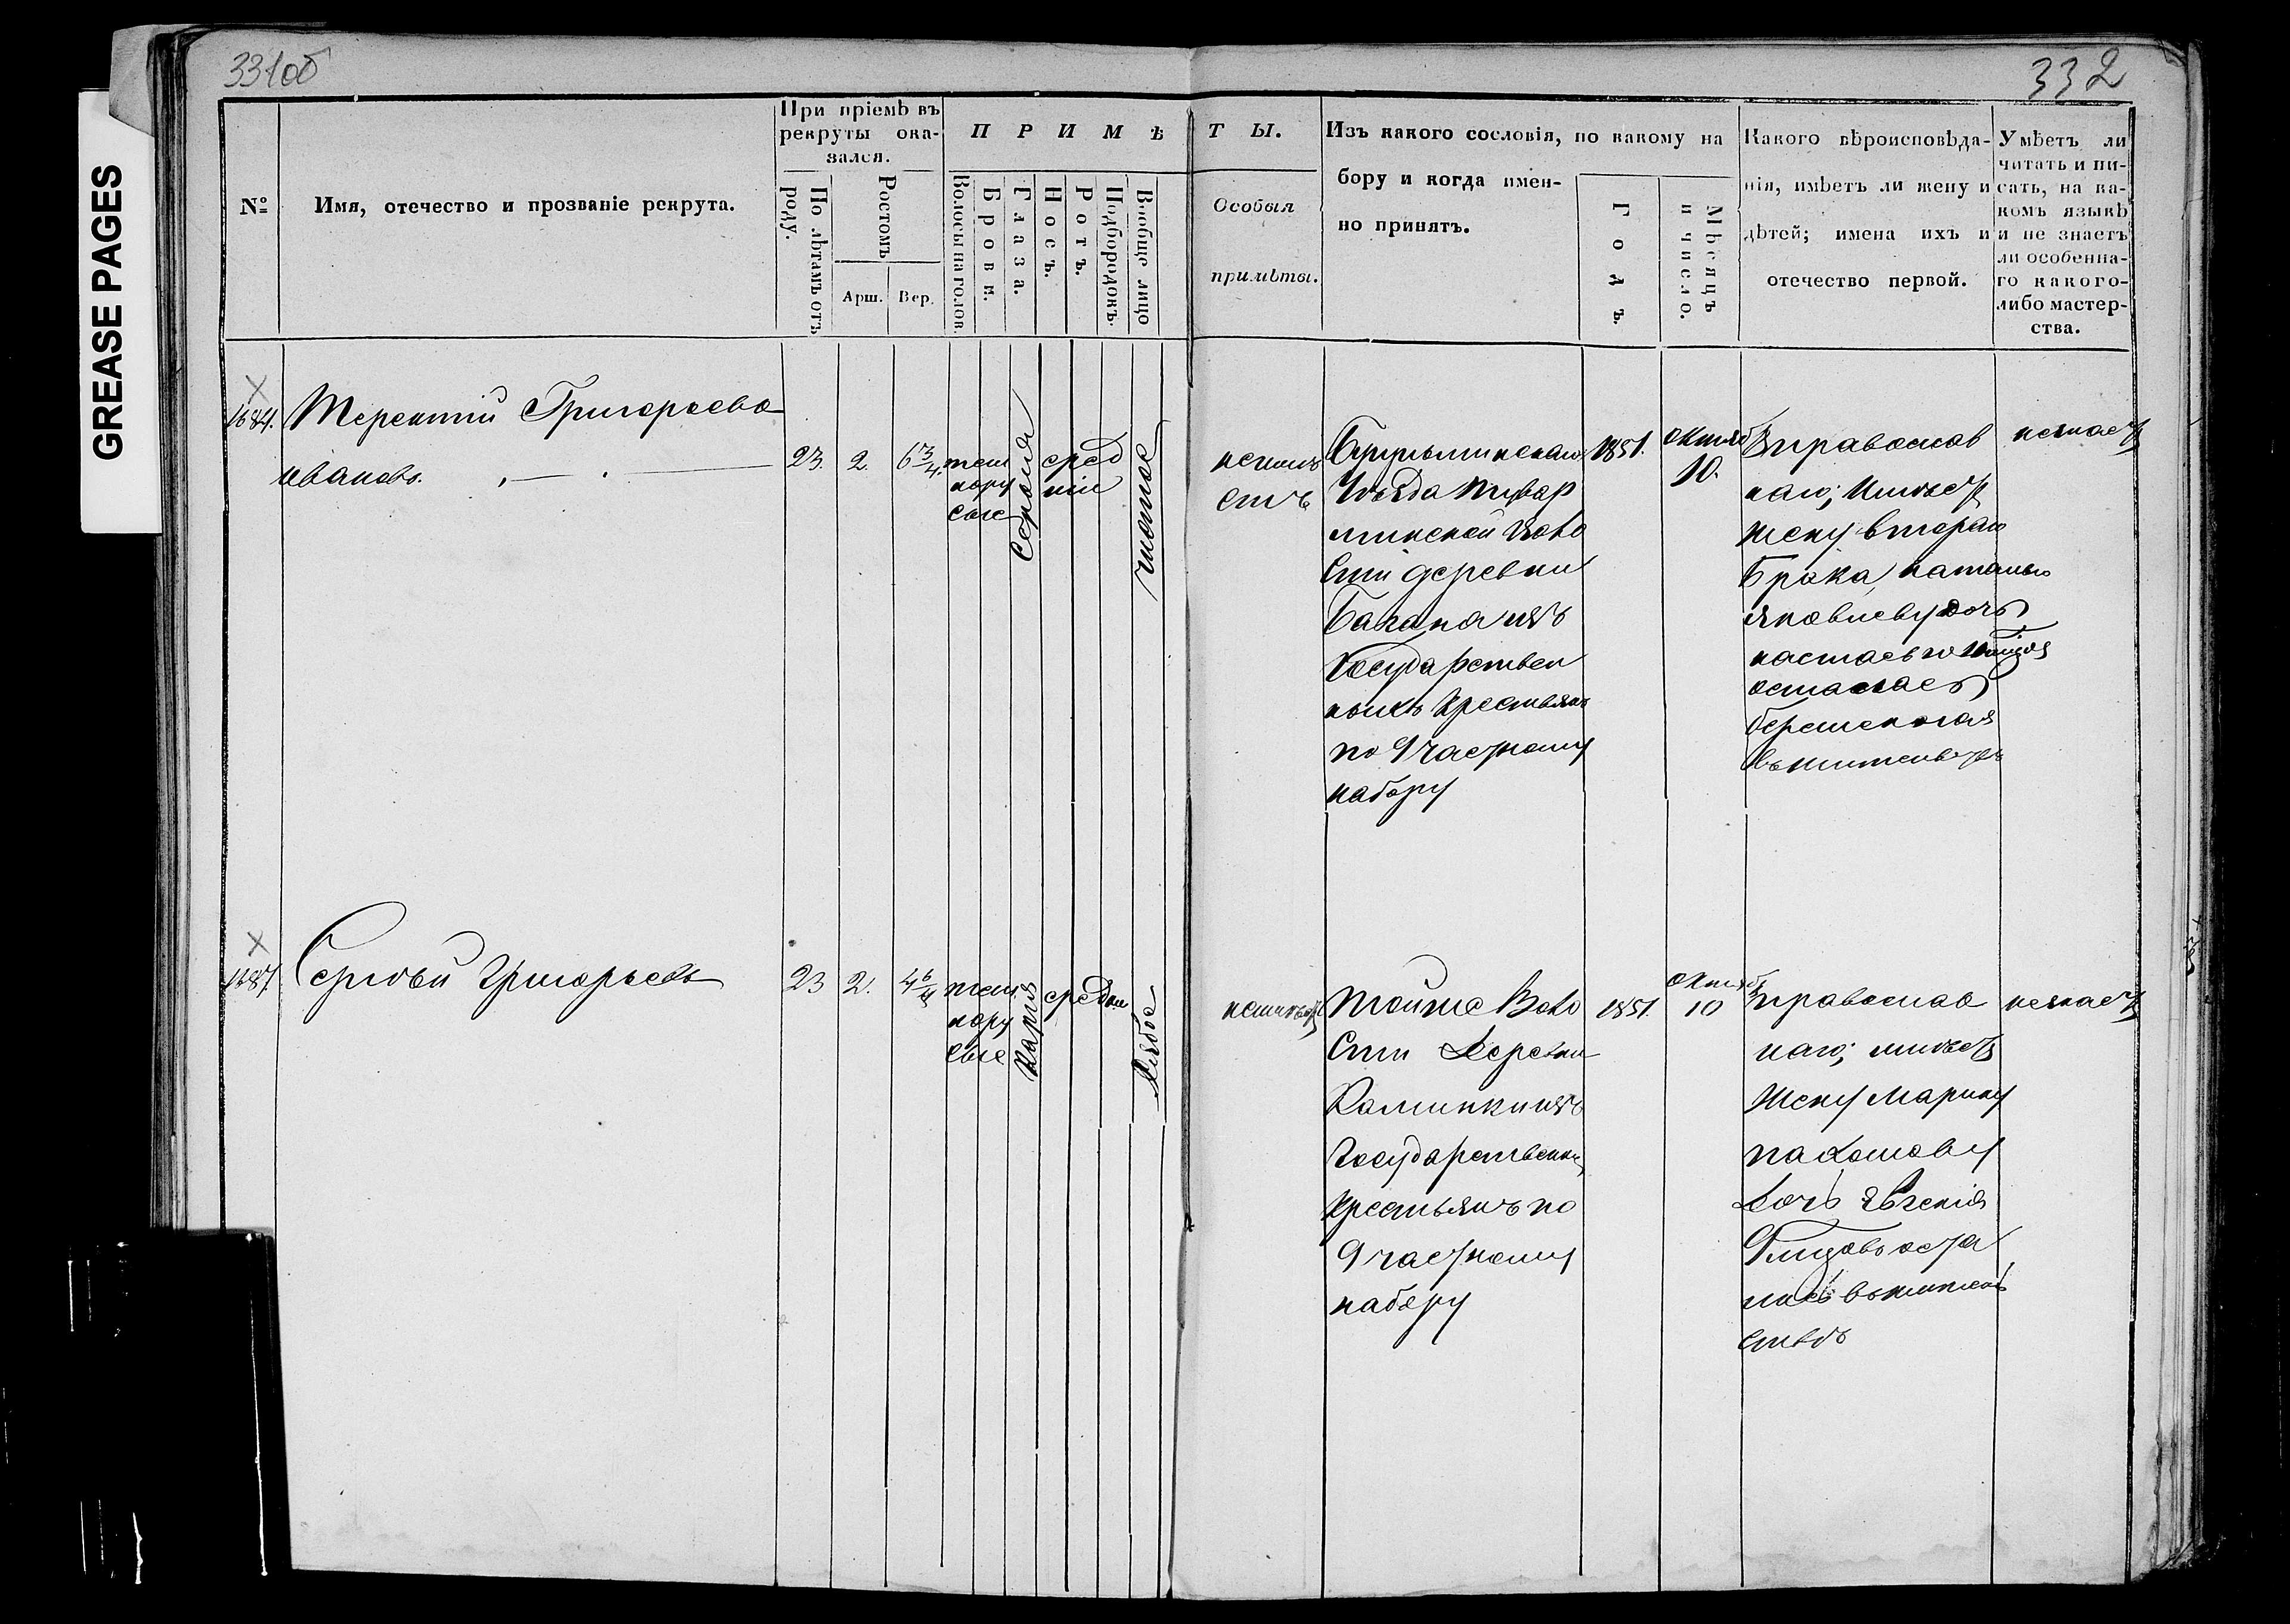 331об
332
GREASE PAGES
№
Имя, отечество и прозваніе рекрута.
При пріемѣ въ
рекруты ока-
зался.
По лѣтамъ отъ
роду.
Ростомъ
Арш.
Вер.
ПРИМѢТЫ.
Волосы на голов.
Брови.
Глаза.
Носъ.
Ротъ.
Подбородокъ.
Вообще лицо
Особыя
примѣты.
Изъ какого сословія, по какому на
бору и когда имен-
но принятъ.
Годъ.
Мѣсяцъ
и число.
Какого вѣроисповѣда-
нія, имѣетъ ли жену и
дѣтей; имена ихъ и
отечество первой.
Умѣетъ ли
читать и пи-
сать, на ка-
комъ языкѣ
и не знаетъ
ли особенна-
го какого-
либо мастер-
ства.
Терентій Григорьевъ
Ивановъ.
23.
2.
6 3/4
тем
нору
сые
Серыя
сред
ніе
чистое
Бугульминскаго
Уѣзда
минской Воло
сти деревни
Государствен
ныхъ Крестьянъ
по 9 частному
набору
1851.
октяб
10.
Православ
наго; имѣетъ
жену втораго
брака, наталью
яковлеву дочь
осталась
беременная
въ жительствѣ
незнаетъ
Сергѣй Григорьевъ
23
2.
тем
нору
сые
Карія
средніе
рябое
неимѣетъ
тойже Воло
сти Деревни
Государственны
Крестьянъ по
9 частному
набору
1851.
октяб
10
Православ
наго; имѣетъ
Жену Марину
пахомову
Дочь Евгенія
оста
лись въ житель
ствѣ
незнаетъ